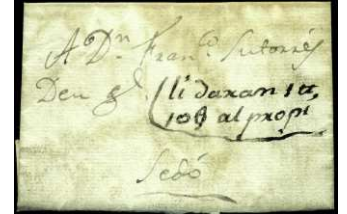 A Dn. Franco. Sutorrés
Deu gl. li daran 1 tt,
10 ẟ al propi
Sedó